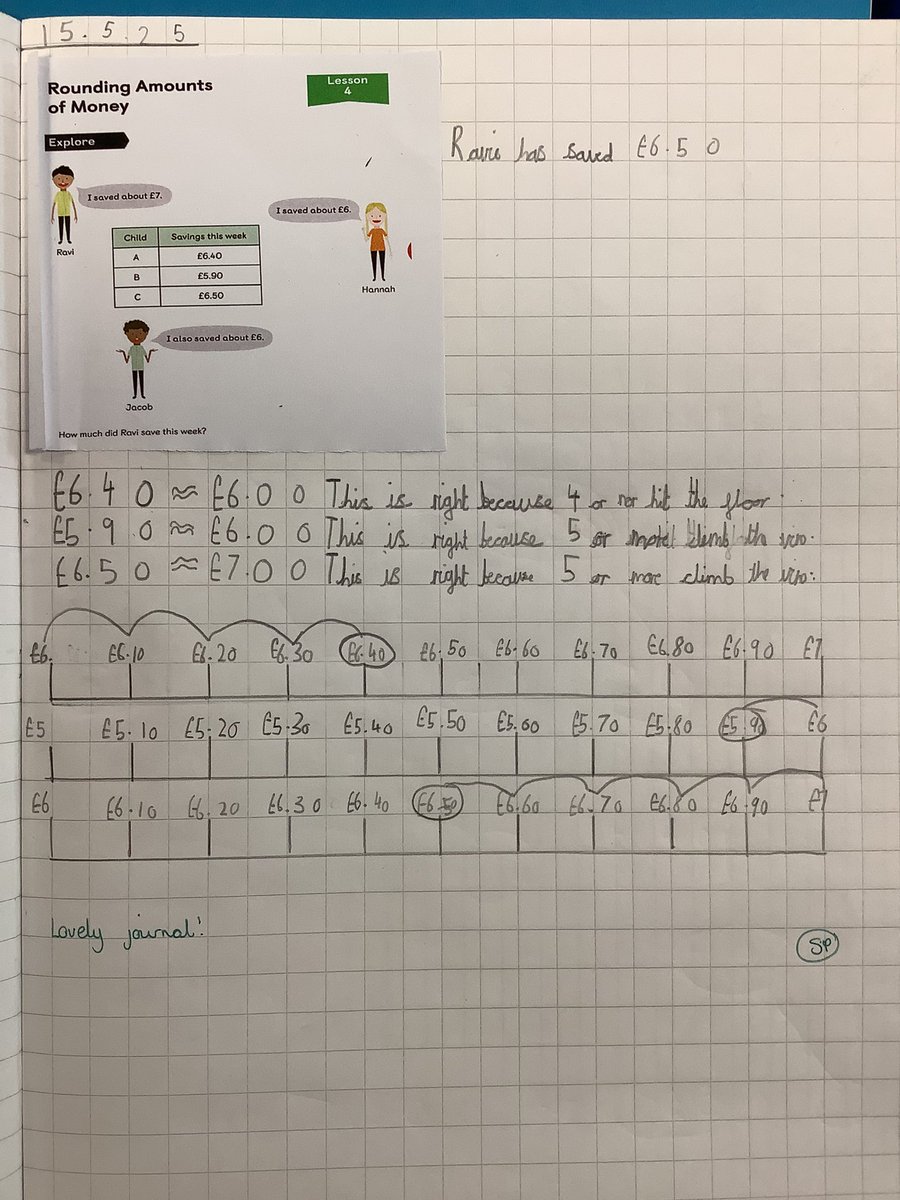 15.5.25
Rounding Amounts
of Money
Lesson
4
Explore
I saved about £7.
Ravi
I saved about £6.
Hannah
Child Savings this week
A £6.40
B £5.90
C £6.50
I also saved about £6.
Jacob
How much did Ravi save this week?
Ravi has saved £6.50
£6.40 ≈ £6.00 This is right because 4 or hit the floor.
£5.90 ≈ £6.00 This is right because 5 or climb the
£6.50 ≈ £7.00 This is right because 5 or more climb the
£6. £6.10 £6.20 £6.30 £6.40 £6.50 £6.60 £6.70 £6.80 £6.90 £7
£5 £5.10 £5.20 £5.30 £5.40 £5.50 £5.60 £5.70 £5.80 £5.90 £6
£6 £6.10 £6.20 £6.30 £6.40 £6.50 £6.60 £6.70 £6.80 £6.90 £7
Lovely journal!
SP